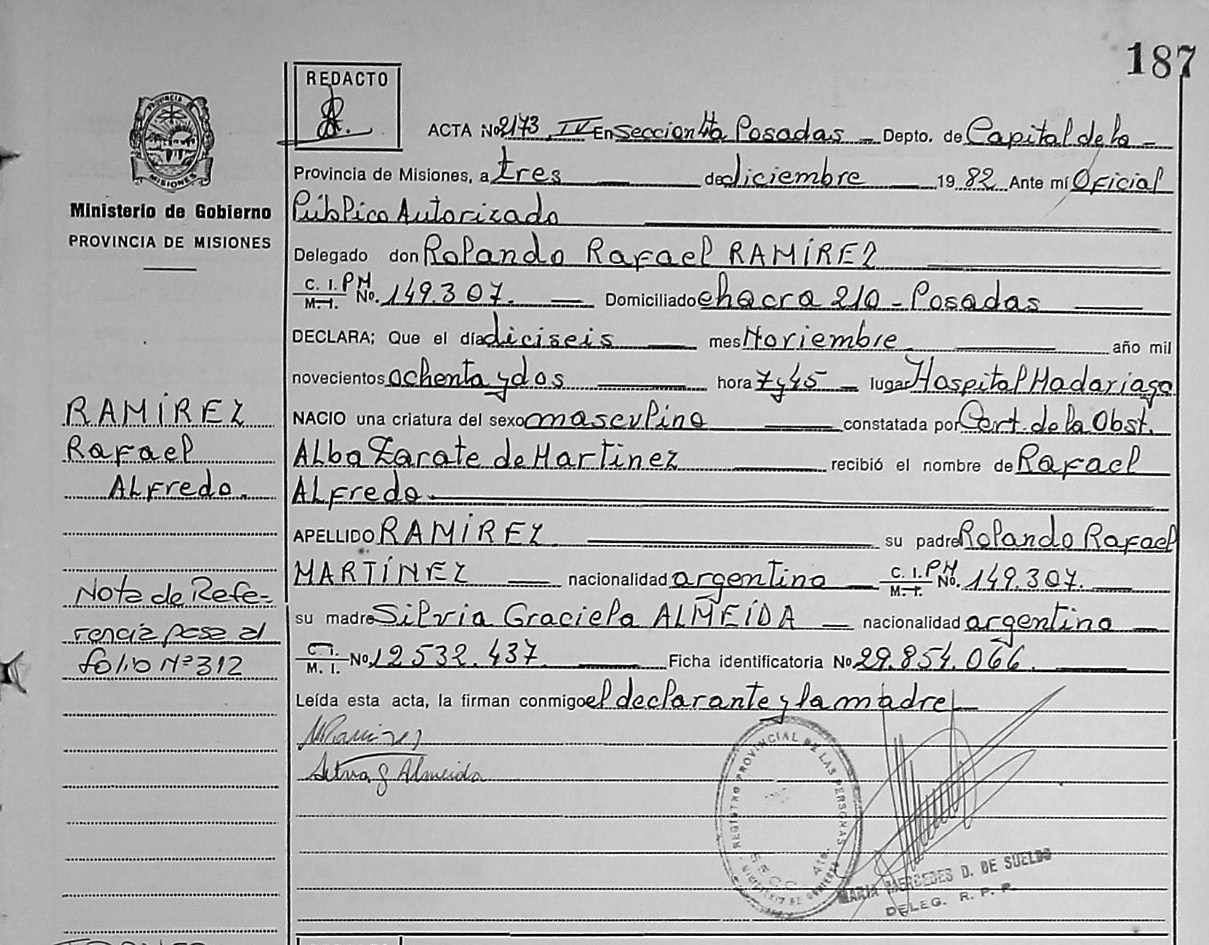 187
REDACTO
PROVINCIA DE
MISIONES
Ministerio de Gobierno
PROVINCIA DE MISIONES
RAMÍREZ
Rafael
Alfredo.
Nota de Refe-
rencia pasa al
folio Nº 312
ACTA Nº 2173 IV En Seccion 4ta Posadas - Depto. de Capital de la -
Provincia de Misiones, a tres de diciembre 19 82 Ante mí Oficial
Público Autorizado
Delegado don Rolando Rafael RAMÍREZ
C. I. M. I. PM No. 149.307. Domiciliado chacra 210 - Posadas
DECLARA; Que el día diciseis mes Noviembre año mil
novecientos ochenta y dos hora 7 y 45 lugar Hospital Madariaga
NACIO una criatura del sexo masculino constatada por Cert. de la Obst.
Alba Zarate de Martinez recibió el nombre de Rafael
Alfredo.
APELLIDO RAMÍREZ su padre Rolando Rafael
MARTÍNEZ nacionalidad argentina C. I. M. I. PM No. 149.307.
su madre Silvia Graciela ALMEÍDA nacionalidad argentina
C. I. M. I. No 12.532.437 Ficha identificatoria No 29.854.066.
Leída esta acta, la firman conmigo el declarante y la madre
Ramirez
Silvia G Almeida
REGISTRO PROVINCIAL DE LAS PERSONAS
SECC. 4ta.
MINISTERIO DE GOBIERNO
MARIA MERCEDES D. DE SUELDO
DELEG. R. P. P.